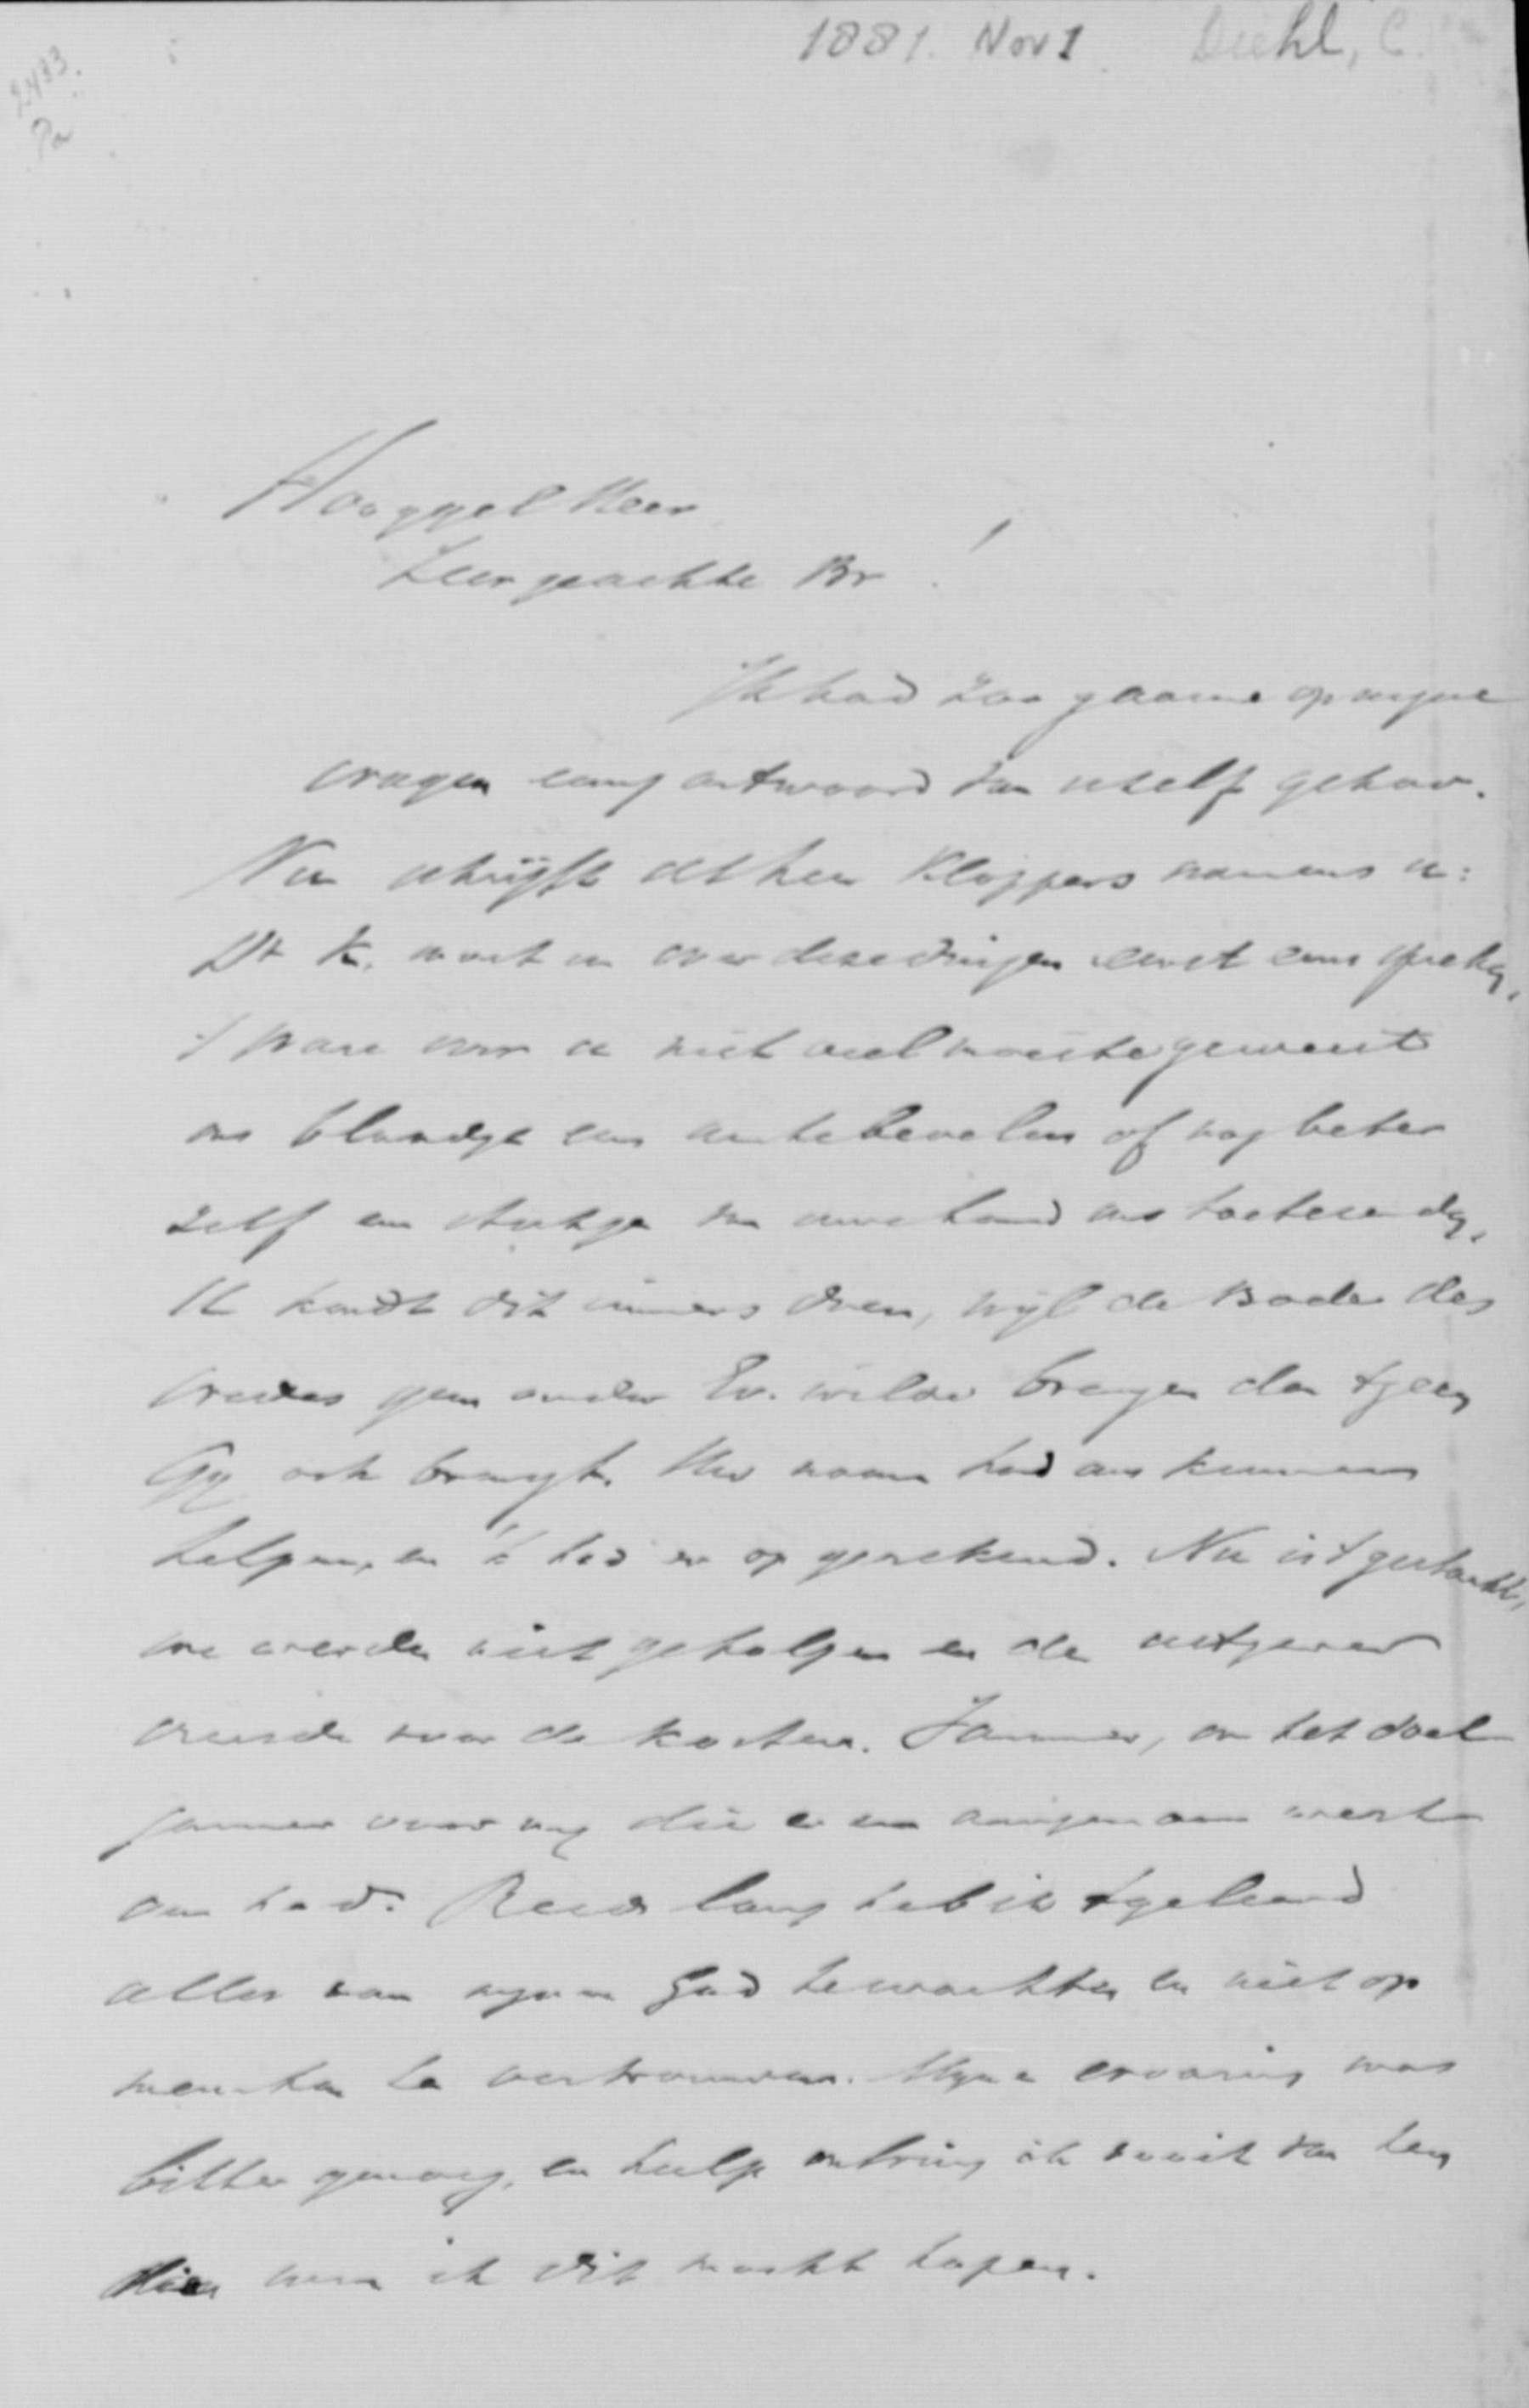 1881. Nov 1 Diehl, C.
2433.
Pa
Hooggel Heer
Zeergeachte Br !
Ik had zoo gaarne op mijne
vragen eenig antwoord van uzelf gehad.
Nu schrijft de heer Kloppers namens u:
Dr K. moet u over deze dingen eerst eens spreken,
't ware voor u niet veel moeite geweest
ons blaadje eens aantebevelen of nog beter
zelf een stukje van uwe hand ons toetezenden,
U kondt dit immers doen, wijl de Bode des
vredes geen ander Ev. wilde brengen dan tgeen
Gij ook brengt. Uw naam had ons kunnen
helpen, en 'k had er op gerekend. Nu is t gestaakt,
we werden niet geholpen en de uitgever
vreesde voor de kosten. Jammer, om het doel
jammer voor mij die er een aangenaam werk
aan had. Reeds lang heb ik tgeleerd
alles van mijnen God te wachten en niet op
menschen te vertrouwen. Mijne ervaring was
bitter genoeg, en hulp ontving ik nooit van hen
van ik dit mocht hopen.